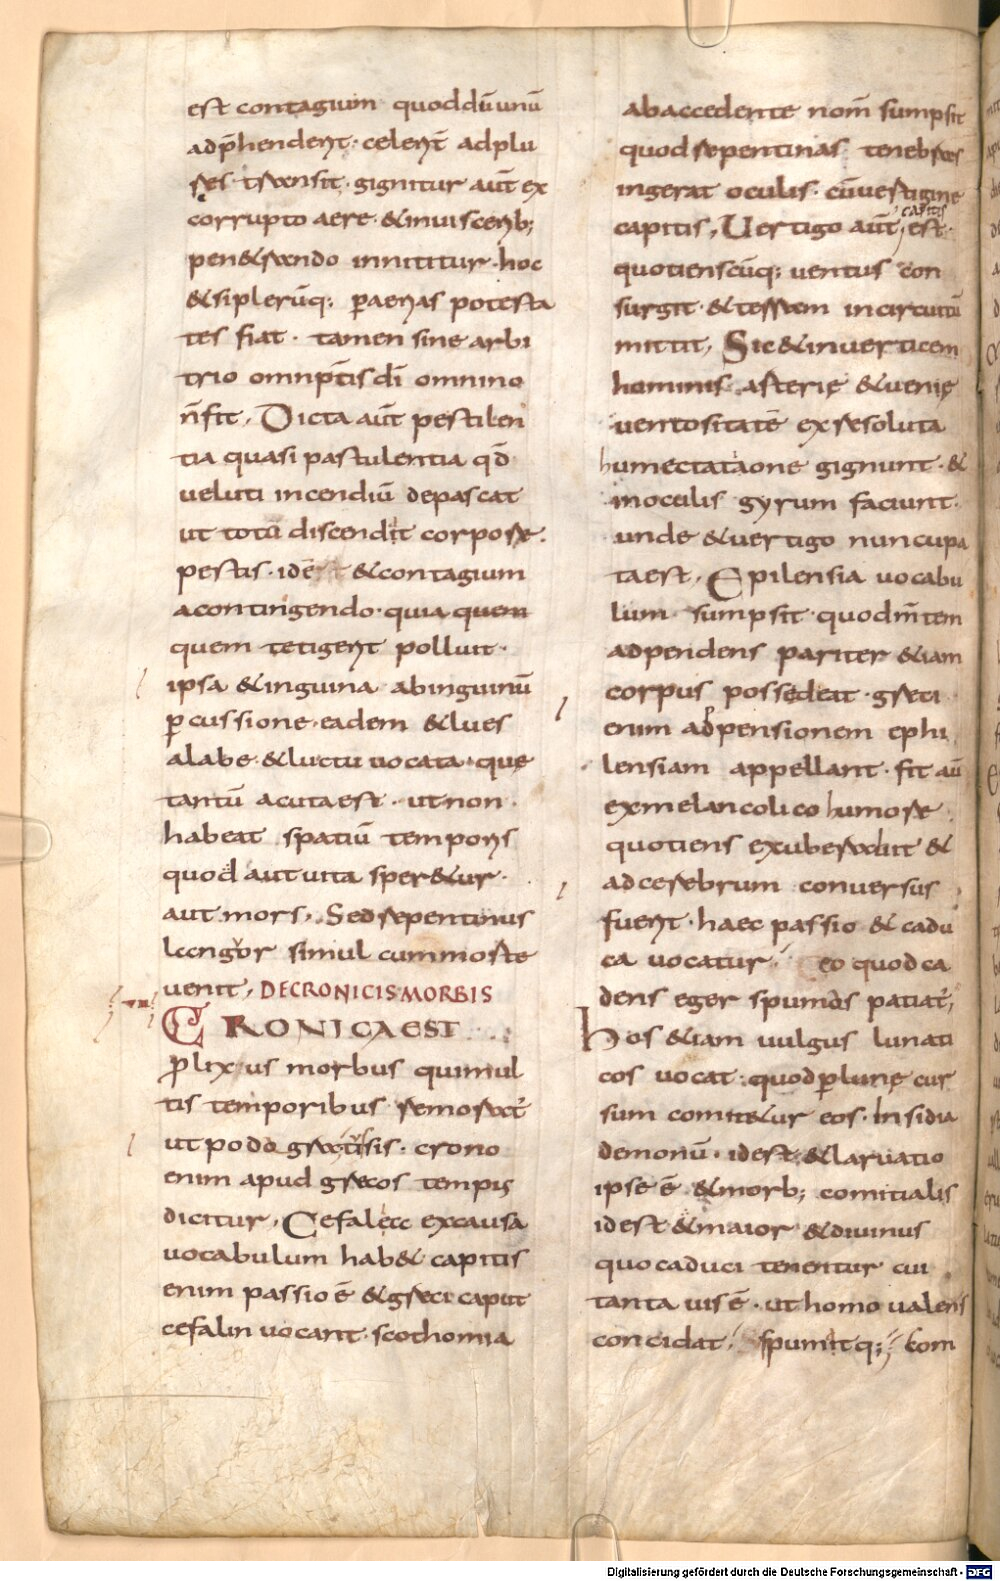 est contagium quoddū unū
adp̄hendert· celerit̄ adplu
res transit· gignitur aut̄ ex
corrupto aere· &inuiscerib;
pen&rando innititur· hoc
&siplerūq; ꝑaerias potesta
tes fiat· tamen sine arbi
trio omnip̄tis dī omnino
n̄ fit, Dicta aut̄ pestilen
tia quasi pastulentia qd̄
ueluti incendiū depascat
ut totū discendit corpore·
pestis· idē &contagium
acontingendo· quia quem
quem tetigerit polluit·
ipsa &inguina abinguinū
ꝑcussione· eadem &lues
alabe &luctu uocata· quę
tantū acuta est· ut non
habeat spatiū temporis
quod aut uita sper&ur·
aut mors, Sed repentinus
languor simul cum morte
uenit, DECRONICISMORBIS
CRONICA EST
ꝓlixus morbus qui mul
tis temporibus remorat̄
ut podagra tisis· crono
enim apud grecos tempis
dicitur, Cefalea excausa
uocabulum hab& capitis
enim passio ē &greci caput
cefalin uocant· scothomia
abaccedente nom̄ sumpsit
quod repentinas tenebras
ingerat oculis· cūuestigine
capitis, Uertigo aut̄ capitis est·
quotienscūq; uentus con
surgit· &terram incircuitū
mittit, Sic &inuerticem
hominis arterię &uenię
uentositatē ex resoluta
humectataone gignunt· &
inoculis gyrum faciunt·
unde &uertigo nuncupa
ta est, Epilensia uocabu
lum sumpsit· quod m̄tem
adpendens pariter &iam
corpus possedeat· greci
enim adpensionem ephi
lensiam appellant· fit aū
exmelancolico humore
quotiens exuberauit &
adcerebrum conuersus
fuerit· haec passio & cadu
ca uocatur eo quod ca
dens eger spumas patiat̄;
hos &iam uulgus lunati
cos uocat· quod ꝑ lunę cur
sum comit&ur eos· Insidia
demonū· id est &laruatio
ipse ē &morb; comitialis
id est &maior &diuinus
quo caduci tenentur cui
tanta uis ē· ut homo ualens
concidat, spumitq; com
Digitalisierung gefördert durch die Deutsche Forschungsgemeinschaft - DFG